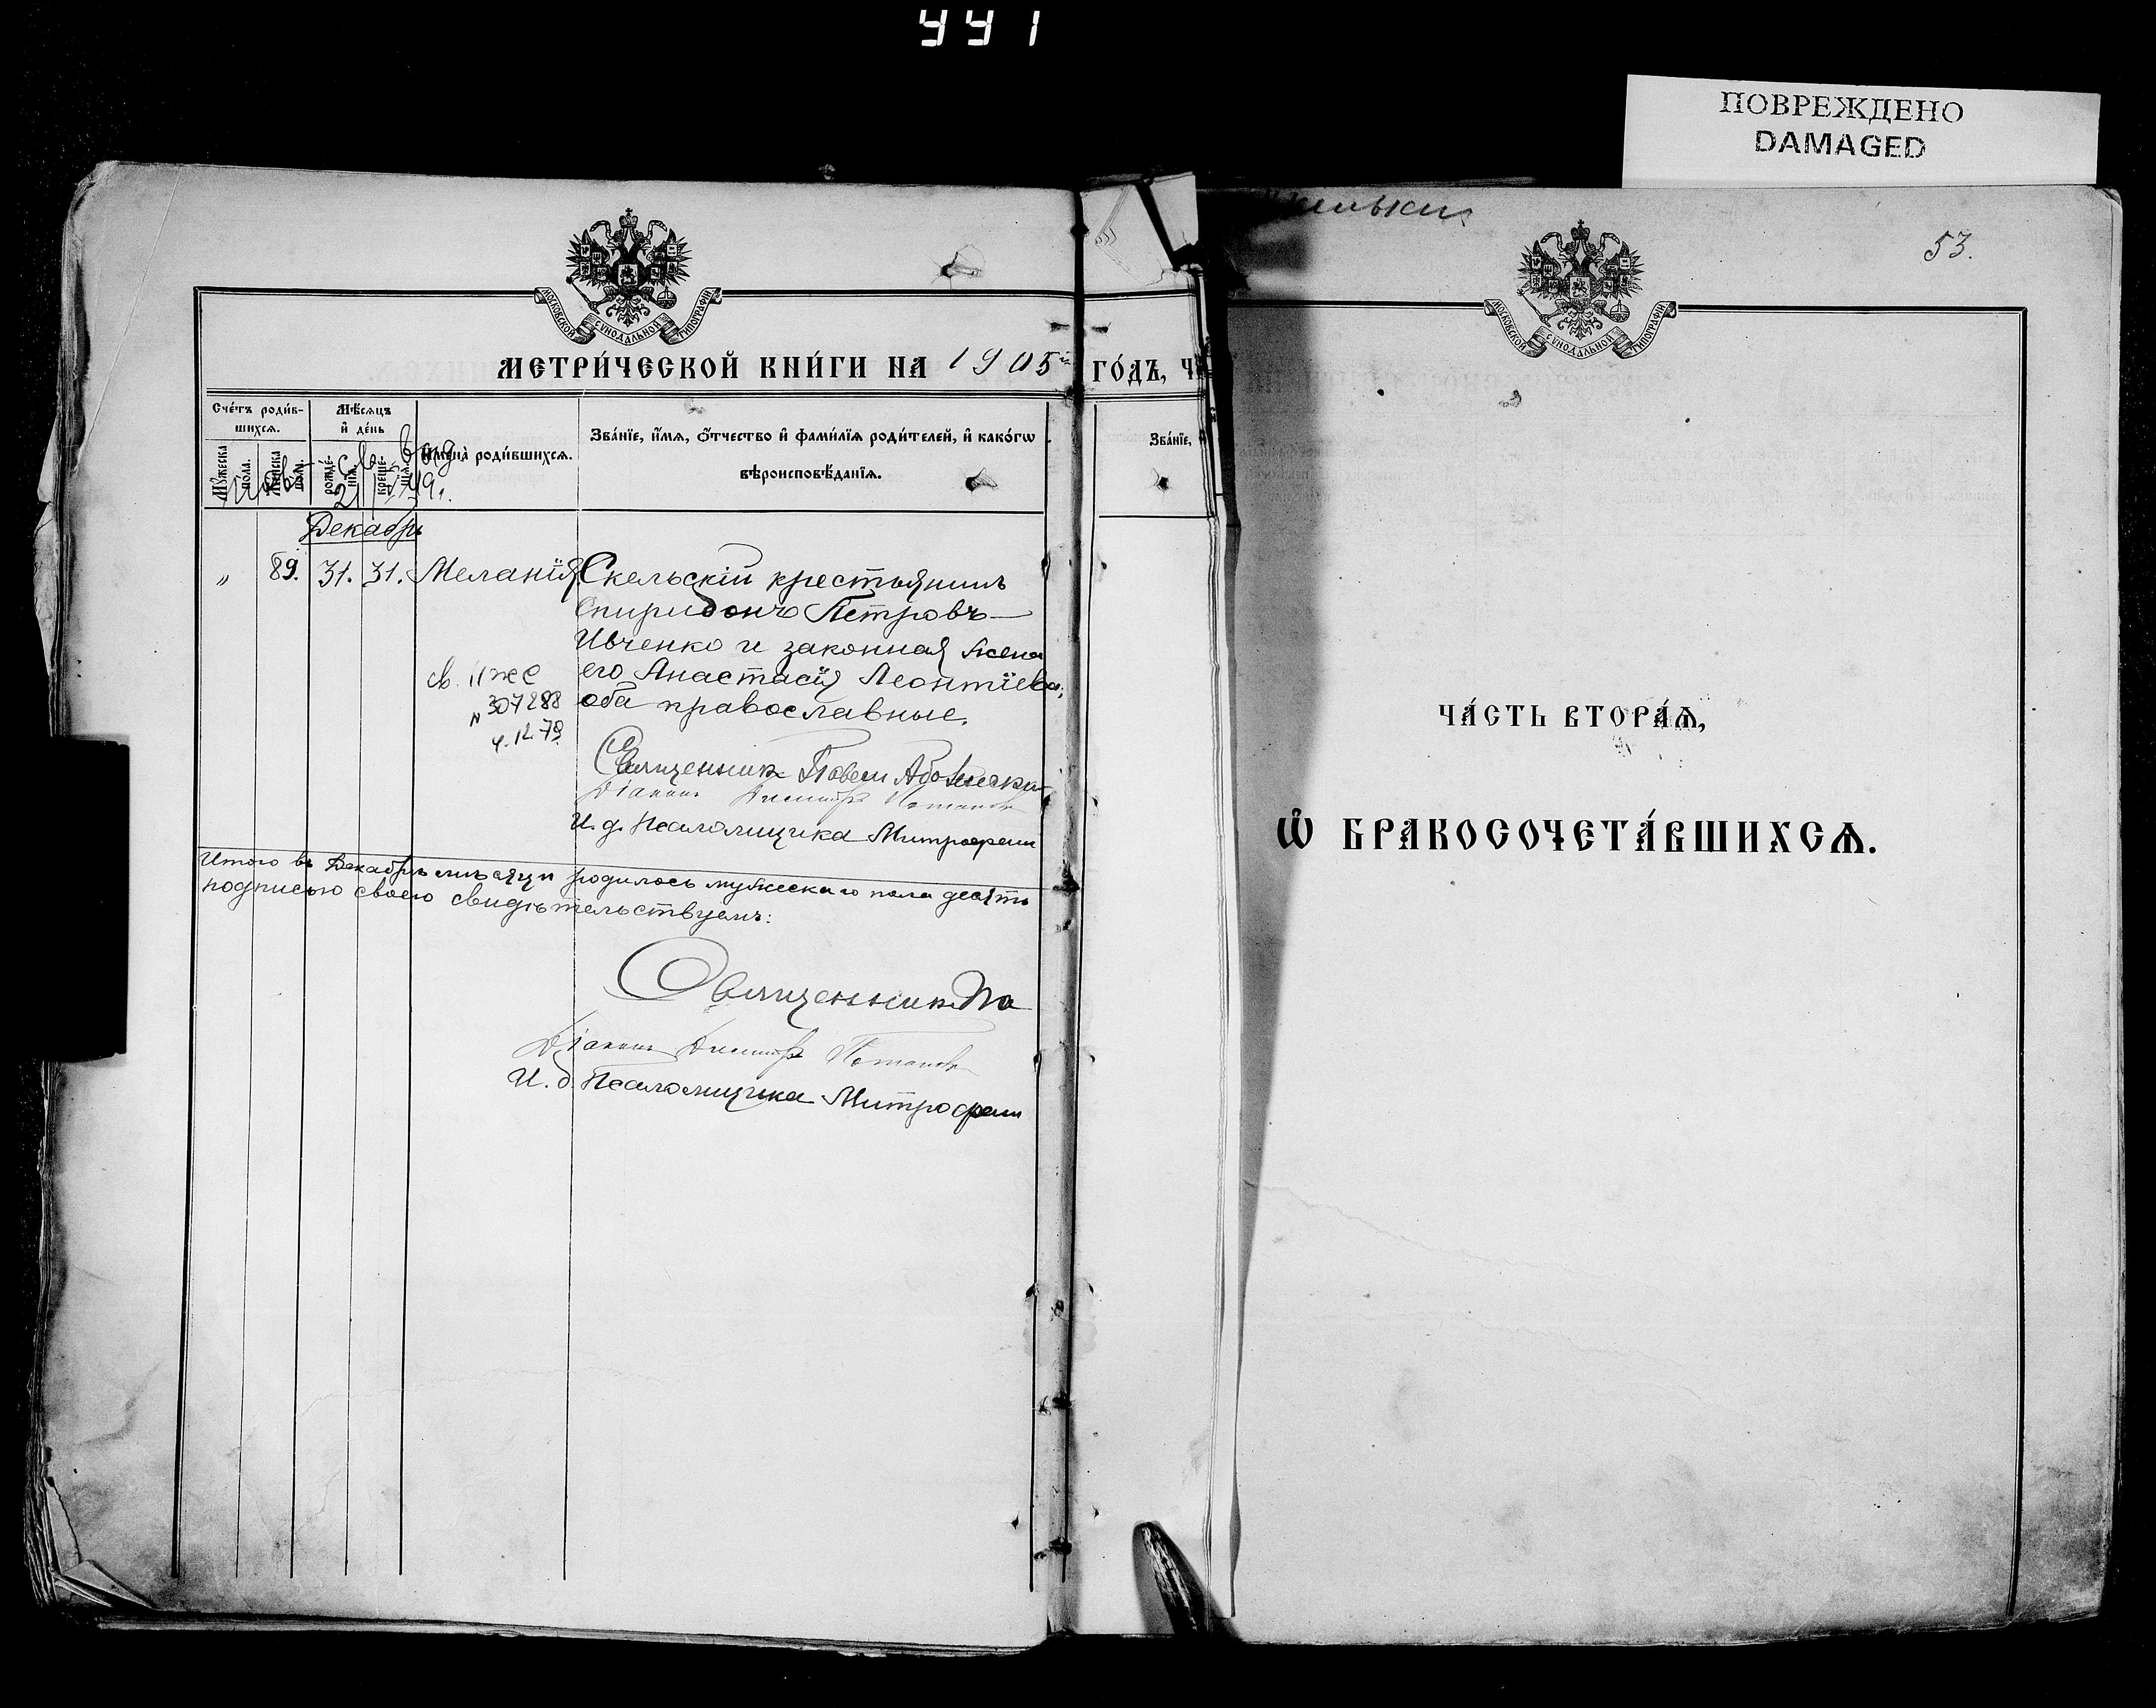 441
ПОВРЕЖДЕНО
DAMAGED
МОСКОВСКОЙ СѴНОДАЛЬНОЙ ТИПОГРАФІИ
МЕТРИ́ЧЕСКОЙ КНИ́ГИ НА 1905й
Сче́тъ роди́в-
шихсѧ.
Мѣ́сѧцъ
и҆ де́нь
Мꙋ́жеска
пола.
Же́нска
пола.
рожде́-
нїѧ.
креще́-
нїѧ.
И҆мена̀ роди́вшихсѧ.
Зва́нїе, и҆́мѧ, ѻ҆́тчество и҆ фами́лїѧ роди́телей, и҆ како́гѡ
вѣроисповѣ́данїѧ.
Декабрь
" 89. 31. 31. Меланія
Скельскій крестьянинъ
Спиридонъ Петровъ
Ивченко и законная жена
его Анастасія Леонтіева;
оба православные.
св. ІІ же
№ 307288
4.12.79
Священник Павел
Діаконъ Димитрій Потаповъ
И. д. Псаломщика Митрофан
Итого въ Декабрѣ мѣсяцѣ родилось мужескаго пола десять
подписью своею свидѣтельствуемъ:
Священник Па
Діаконъ Димитрій Потаповъ
И. д. Псаломщика Митрофан
ГО́ДЪ, Ч
Зва́нїе,
53.
МОСКОВСКОЙ СѴНОДАЛЬНОЙ ТИПОГРАФІИ
ЧА́СТЬ ВТОРА́Ѧ,
Ѽ БРАКОСОЧЕТА́ВШИХСѦ.